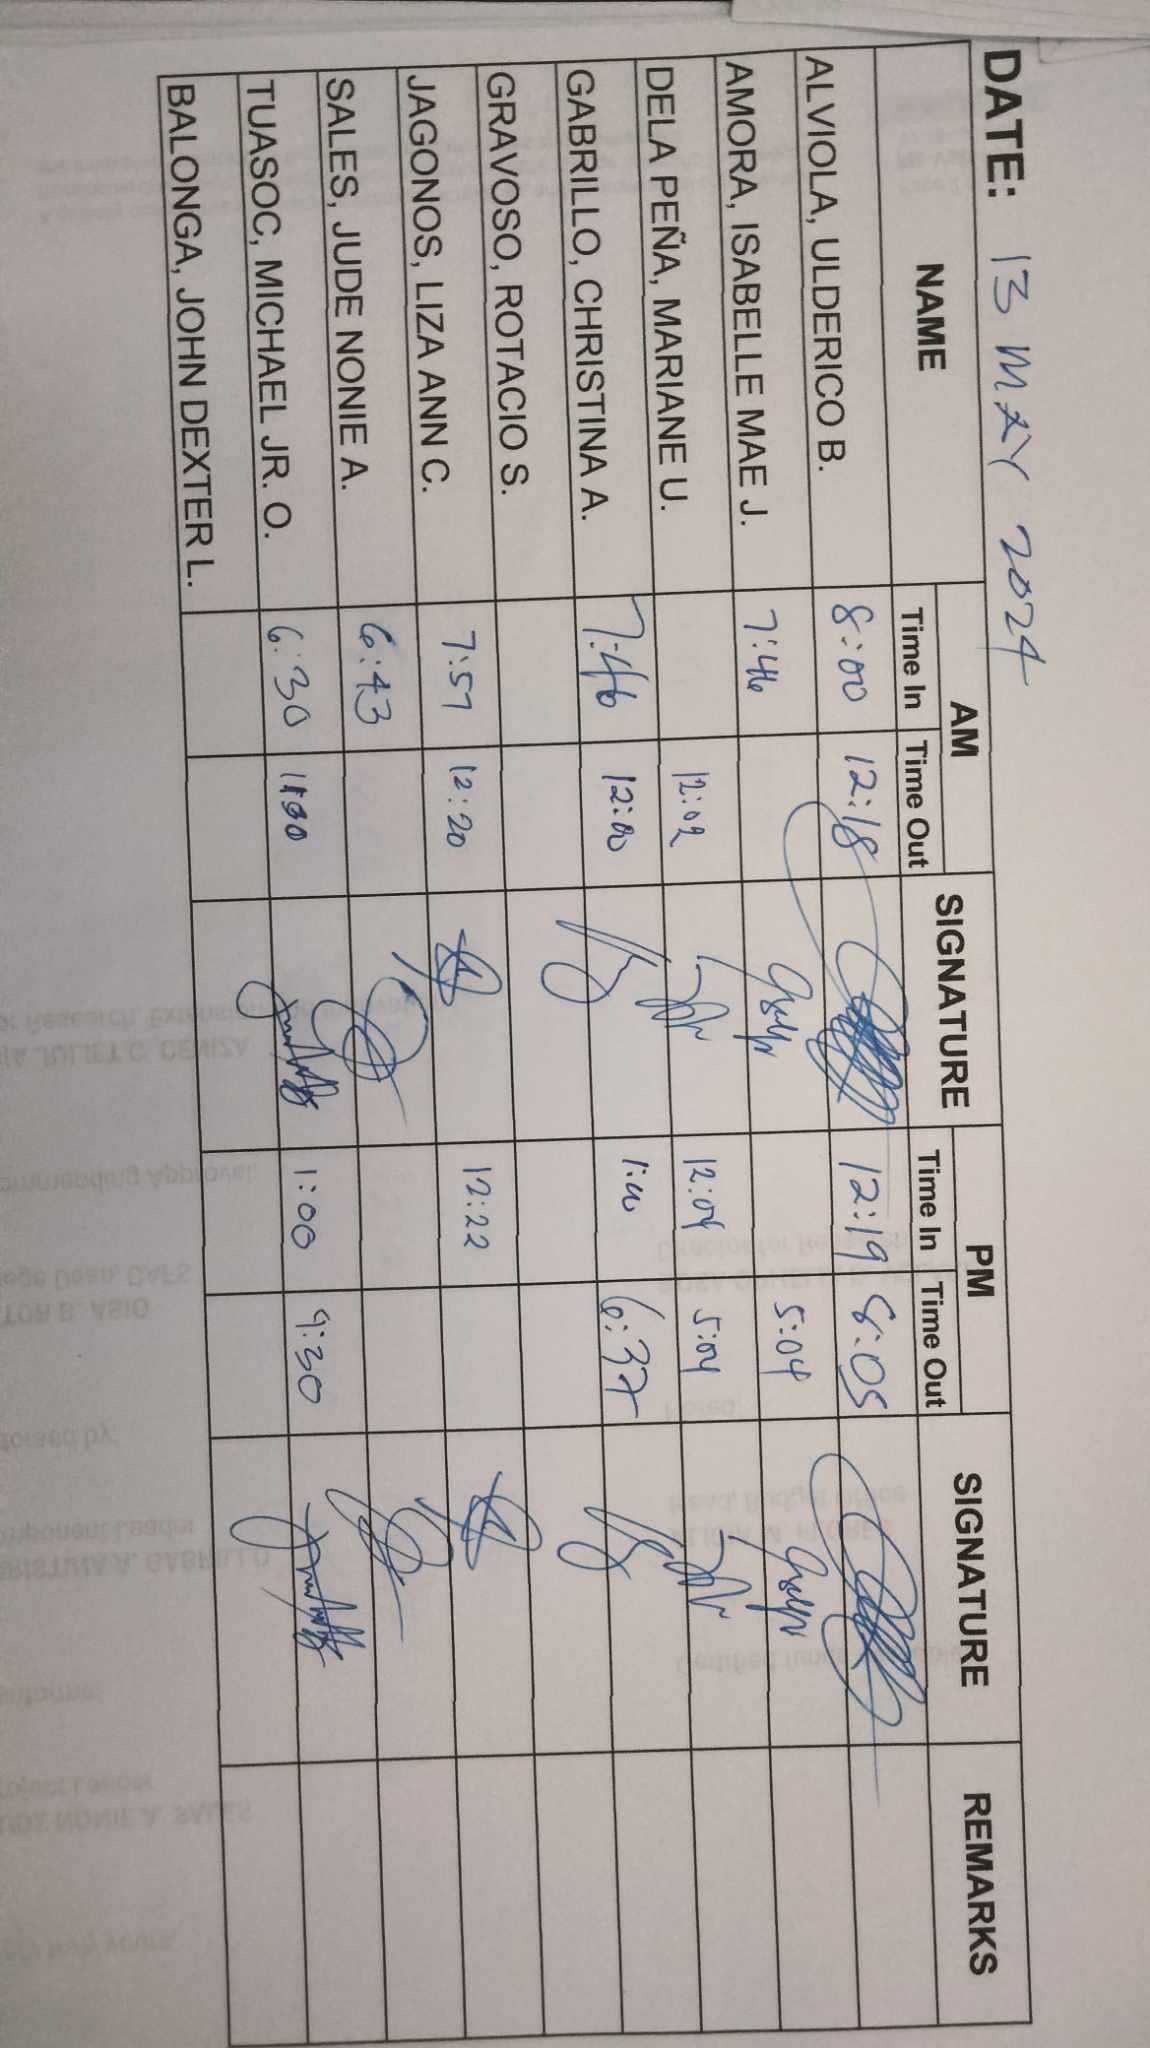 DATE: 13 MAY 2024
NAME AM SIGNATURE PM SIGNATURE REMARKS
Time In Time Out Time In Time Out
ALVIOLA, ULDERICO B. 8:00 12:18 12:19 8:05
AMORA, ISABELLE MAE J. 7:46 5:04
DELA PEÑA, MARIANE U. 12:02 12:04 5:04
GABRILLO, CHRISTINA A. 7:46 12:00 1:00 6:37
GRAVOSO, ROTACIO S.
JAGONOS, LIZA ANN C. 7:57 12:20 12:22
SALES, JUDE NONIE A. 6:43
TUASOC, MICHAEL JR. O. 6:30 1:00 9:30
BALONGA, JOHN DEXTER L.